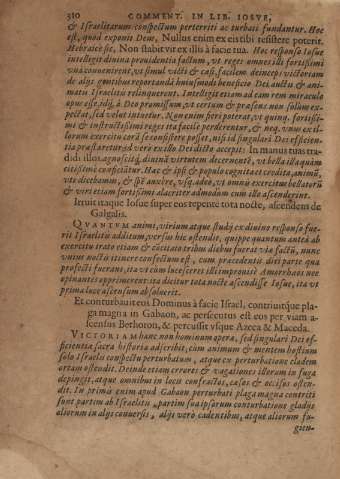 310 COMMENT. IN LIB. IOSVE,
& Israelitarum conspectum perterriti ac turbati fundantur. Hoc
est, quod exponit Deus, Nullus enim ex eis tibi resistere poterit.
Hebraicè sic, Non stabit vir ex illis à facie tua. Hoc responso Iosue
intellegit diuina prouidentia factum, vt reges omnes illi fortissimi
vnà conuenirent, vt simul victi & cæsi, facilem deinceps victoriam
de alijs gentibus reportandã huiusmodi beneficio Dei aucti & ani-
matis Israelitis relinquerent. Intelligit etiam ad eam rem miraculo
opus esse, idq́; à Deo promissum, vt certum & præsens non solùm ex-
pectat, sed velut intuetur. Non enim fieri poterat, vt quinq; fortissi-
mi & instructissimi reges ita facilè perderentur, & neq; vnus ex il-
lorum exercitu corã se consistere posset, nisi id singulari Dei efficien-
tia præstaretur: id verò ex illo Dei dicto accepit: In manus tuas tra-
didi illos. agnoscitq́; diuinã virtutem decernentẽ, vt bella illa quàm
citissimè conficiãtur. Hæc & ipse & populo cognita et credita, animũ,
vt decebamus, & spẽ auxère, vsq; adeò, vt omnis exercitus bellatorũ
& viri etiam fortissimi alacriter admodum cum illo ascenderint.
Irruit itaque Iosue super eos repente tota nocte, ascendens de
Galgalis.
QVANTVM animi, virium atque studij ex diuino responso fue-
rit Israelitis additum, versus hic ostendit, quippe quantum antea ab
exercitu itato etiam & cocitato tribus diebus fuerat via factũ, nunc
vnius noctis itinere confectum est, cum præcedentis diei parte qua
profecti fuerant, ita vt cùm lucesceret illi improuisi Amorrhæos nec
opinantes opprimerent: ita dicitur tota nocte ascendisse Iosue, ita vt
prima luce ascensum absoluerit.
Et conturbauit eos Dominus à facie Israel, contriuitque pla-
ga magna in Gabaon, ac persecutus est eos per viam a-
scensus Bethoron, & percussit vsque Azeca & Maceda.
VICTORIAM hanc non hominum opera, sed singulari Dei ef-
ficientia sacra historia adscribit, cùm animum & mentem hostium
solo Israelis conspectu perturbatum, atque ex perturbatione cladem
ortam ostendit. Deinde etiam errores & vagationes illorum in fuga
depingit, atque omnibus in locis confractos, cæsos & occisos osten-
dit. In primis enim apud Gabaon perturbati plaga magna contriti
sunt partem ab Israelitis, partim sua ipsorum conturbatione gladijs
aliorum in alijs conuersis, alijs verò cadentibus, atque aliorum fu-
gien-